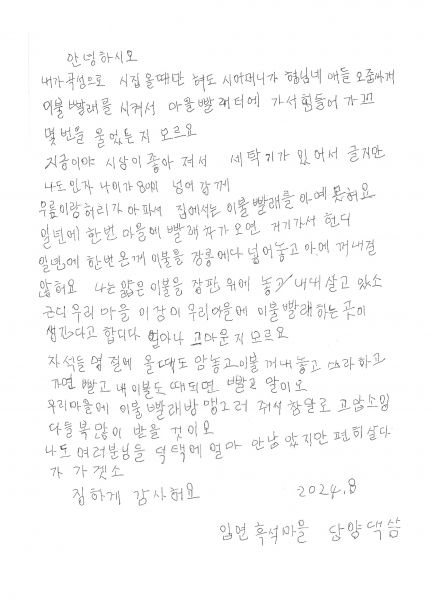 안녕하시오
내가 곡성으로 시집 올때만 혀도 시어머니가 형님네 애들 오줌싸게
이불빨래를 시켜서 마을빨래터에 가서 힘들어 가꼬
몇번을 울었는지 모르요
지금이야 시상이 좋아져서 세탁기가 있어서 글지만
나도 인자 나이가 80이 넘어감께
무릎이랑 허리가 아파서 집에서는 이불빨래를 아예 못혀요
일년에 한번 마을에 빨래차가 오면 거기가서 헌디
일년에 한번 온께 이불을 장롱에다 넣어놓고 아예 꺼내질
않혀요 나는 얇은 이불을 장판 위에 놓고 내대 살고 있소
근디 우리 마을 이장이 우리마을에 이불빨래하는 곳이
생긴다고 합디다 얼마나 고마운지 모르요
자석들 명절에 올때도 맘놓고 이불 꺼내놓고 쓰라하고
가면 빨고 내 이불도 때되면 빨고 말이오
우리마을에 이불빨래방 맹그러 줘서 참말로 고맙소잉
다들 복 많이 받을 것이오
나도 여러분님들 덕택에 얼마 안남았지만 편히 살다
가 가겟소
징하게 감사혀요 2024.8
입면 흑석마을 담양댁